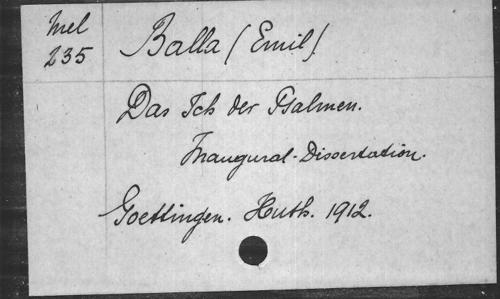 Mel
235
Balla (Emil)
Das Ich der Psalmen.
Inaugural-Dissertation.
Goettingen. Huth. 1912.